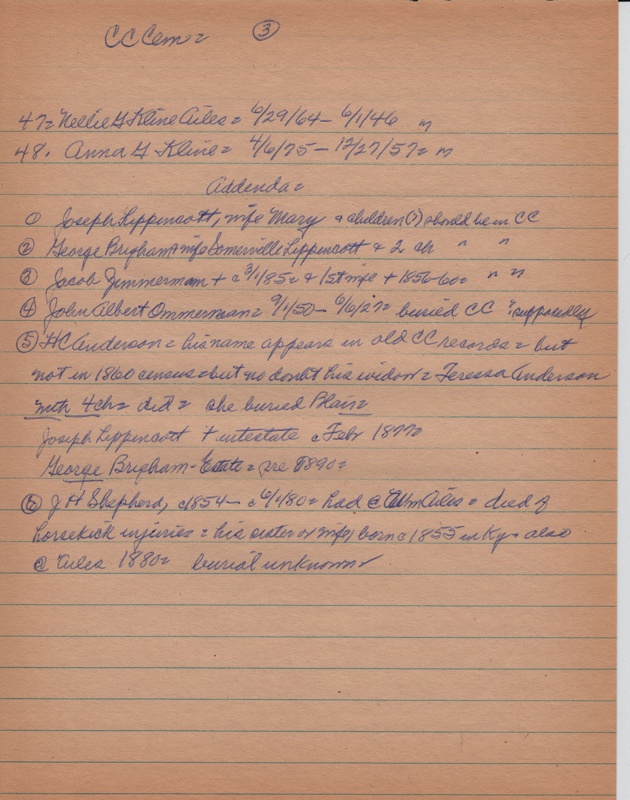 CC Cem = ③
47 = Nellie G Kline Ailes = 6/29/64 - 6/1/46 m
48. Anna G Kline = 4/6/75 - 12/27/57 = m
Addenda =
① Joseph Lippencott, wife Mary & children (?) should be in CC
② George Brigham & wife Somerville Lippencott & 2 ch " "
③ Jacob Zimmerman + c 3/1/85 = & 1st wife + 1856-60 = " "
④ John Albert Ommerman = 9/1/50 - 6/6/27 = buried CC ? supposedly
⑤ HC Anderson = his name appears in old CC records = but
not in 1860 census = but no doubt his widow = Teressa Anderson
with 4 ch = did = she buried Blain =
Joseph Lippencott + intestate c Febr 1877 =
George Brigham - Estate = pre 1890 =
⑥ J H Shepherd, c1854 - c 6/1/80 = had @ Wm Ailes = died of
horsekick injuries = his sister or wife, born c 1855 in Ky - also
@ Ailes 1880 = burial unknown